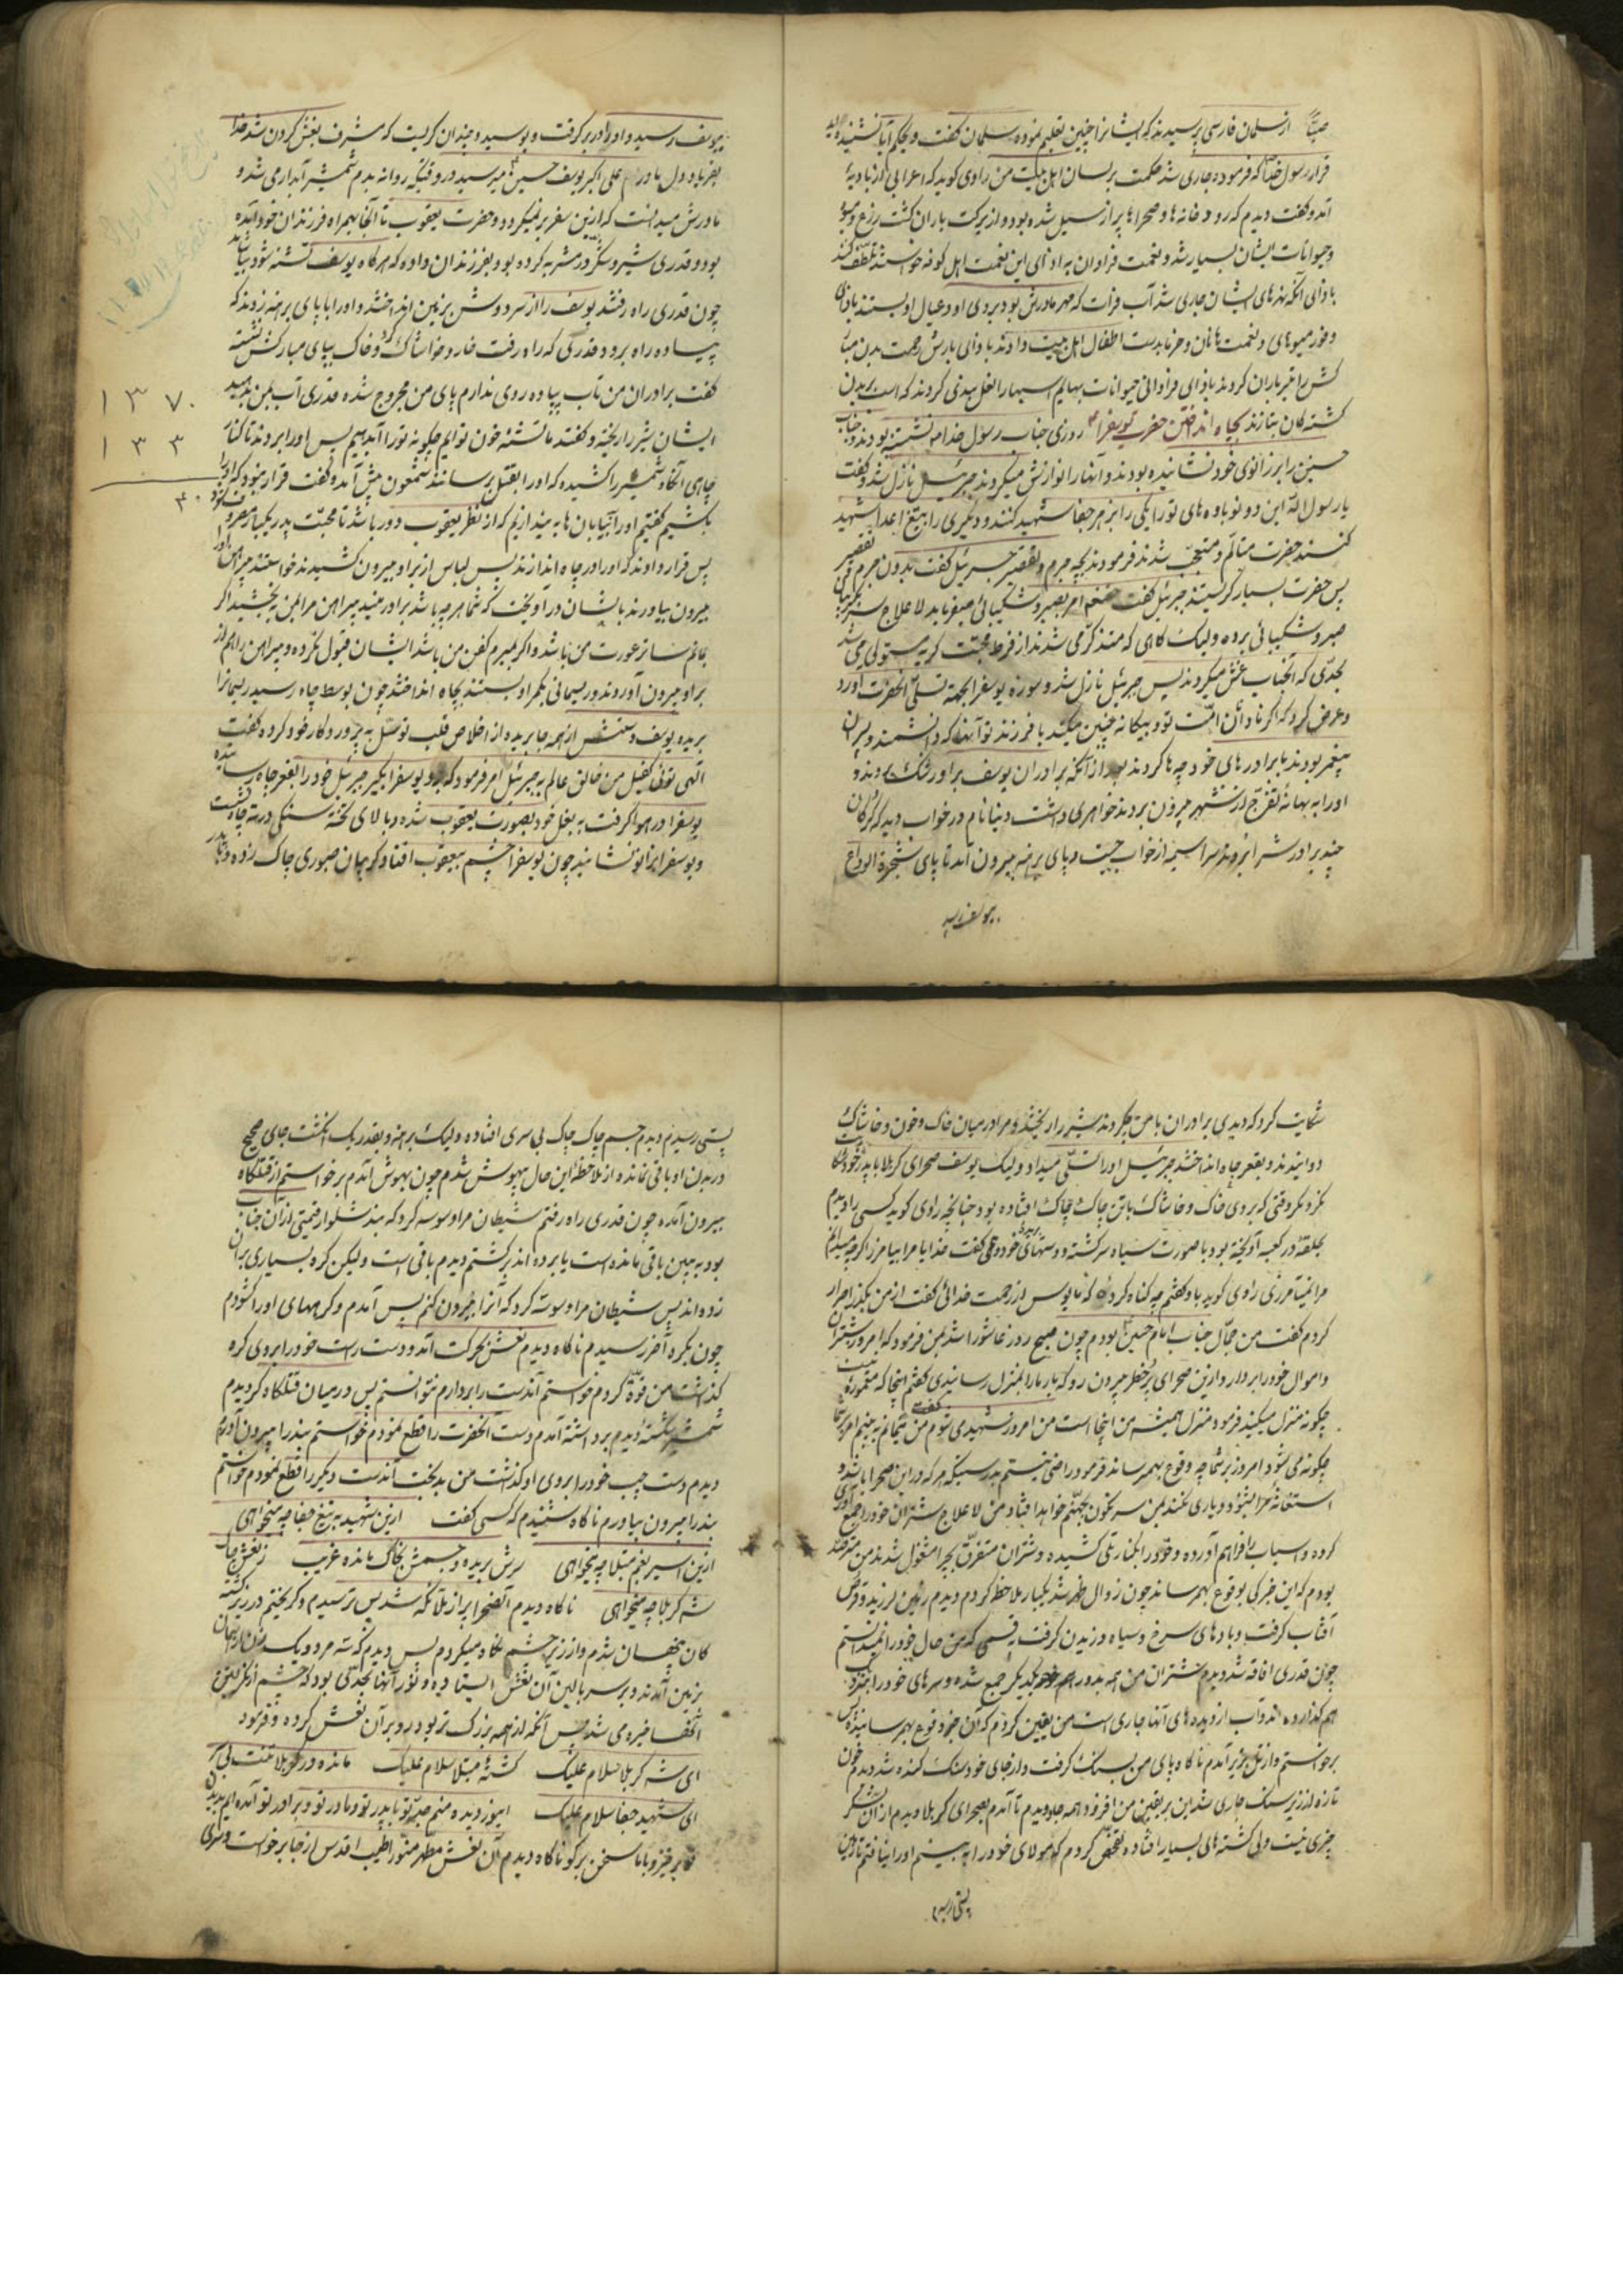 از سلمان فارسی پرسیدند که ایشانرا چنین تعلیم نموده سلمان گفت
قرار رسول خدا که فرموده جاری شد حکمت بر لسان اهل بیت من راوی گوید که اعرابی از بادیهٔ
آمد و گفت دیدم که رودخانه ها و صحراها پر از سیل شده بود و از برکت باران کشت زرع
و حیوانات ایشان بسیار شد و نعمت فراوان به ادای این نعمت اهل کوفه
بادای آنکه نهرهای ایشان جاری شد آب فرات که مهر مادرش بود بروی او و عیال او بستند
و فور میوهای و نعمت با نان و خرما بدست اطفال اهل بیت دادند بادای بارش رحمت بدن
کش را تیر باران کردند بادای فراوانی حیوانات بهایم اسبها را نعل بندی کردند که است بر بدن
کشته کان بتازند بچاه انداختن حضرت یوسفرا روزی جناب رسول خدا نشسته بودند و جناب
حسنین را بر زانوی خود نشانیده بودند و آنها را نوازش میکردند جبرئیل نازل شد و گفت
یا رسول الله این دو نو باوه های تو را یکی را بزهر جفا شهید کنند و دیگری را بتیغ اعدا شهید
کنند حضرت متألم و متعجب شدند فرمودند بچه جرم و تقصیر جبرئیل گفت بدون جرم
پس حضرت بسیار گریستند جبرئیل گفت
صبر و شکیبائی بوده ولیک کاهی که متذکر می شدند از فرط محبت گریه مستولی می شد
بحدی که آنجناب غش میکردند پس جبرئیل نازل شد و سوره یوسفرا بجهة تسلی آنحضرت آورد
و عرض کرد که اگر نادان امت تو و بیگانه چنین میکند با فرزند تو
پیغمبر بودند با برادرهای خود چه ها کردند بعد از آنکه برادران یوسف براو رشک بردند و
او را به بهانهٔ تفرج از شهر بیرون بردند خواهری داشت دنیا نام در خواب دید که گرگان
چند برادرش را بردند سراسیمه از خواب جست و پای برهنه بیرون آمد تا پای شجرة الوداع
بیوسف رسید
بیوسف رسید و او را در بر گرفت و بوسید و چندان گریست که مشرف بغش کردن شد
علی اکبر یوسف حسین میرسید در وقتیکه روانه بدم شمشیر آبدار می شد و
مادرش میدانست که از این سفر بر نمیگردد و حضرت یعقوب تا آنجا بهمراه فرزندان خود آمده
بود و قدری شیر و شکر در مشربه کرده بود و بفرزندان داده که هرگاه یوسف تشنه شود
چون قدری راه رفتند یوسف را از سر دوش بزمین انداختند و او را با پای برهنه زدند که
پیاده راه برود قدری که راه رفت خار و خاشاک و خاک بپای مبارکش نشسته
گفت برادران من تاب پیاده روی ندارم پای من مجروح شده قدری آب بمن بدهید
ایشان شیر را ریخته و گفتند ما تشنهٔ خون توایم چگونه تو را آب دهیم پس او را بردند تا کنار
چاهی آنگاه شمشیر را کشیده که او را بقتل برسانند شمعون پیش آمده گفت قرار نبود که او را
بکشیم گفتیم او را به بیابان ها بیندازیم که از نظر یعقوب دور باشد تا محبت پدر یکباره
پس قرار دادند که او را در چاه اندازند پس لباس از بر او بیرون کشیدند خواستند پیراهن او را
بیرون بیاورند بایشان در آویخت که شما هرچه باشد برادر منید پیراهن مرا بمن بخشید اگر
بمانم ساتر عورت من باشد و اگر بمیرم کفن من باشد ایشان قبول نکرده و پیراهن را هم از
بر او بیرون آوردند و ریسمانی بکمر او بستند بچاه انداختند چون بوسط چاه رسید ریسمانرا
بریده یوسف دستش از همه جا بریده از اخلاص قلب توسل به پروردگار خود کرده گفت
الهی توئی کفیل من خالق عالم به جبرئیل امر فرمود که برو یوسفرا بگیر جبرئیل خود را بقعر چاه رسانیده
یوسفرا در هوا گرفت به بغل خود بصورت یعقوب شده و بالای تخته سنگی در ته چاه نشست
و یوسفرا بزانو نشانید چون یوسفرا چشم بیعقوب افتاد گریبان صبوری چاک زده
۱۳۷۰
۱۳۳
۳۰
شکایت کرد که دیدی برادران با من چه کردند شیر را ریختند و مرا در میان خاک و خون و خاشاک
دوانیدند و بقعر چاه انداختند جبرئیل او را تسلی میداد ولیک یوسف صحرای کربلا با پدر خود شکایت
نکرد مگر وقتی که بروی خاک و خاشاک با تن چاک چاک افتاده بود چنانچه راوی گوید کسی را دیدم
بحلقهٔ در کعبه آویخته بود با صورت سیاه سرگشته و دستهای بریده خود و می گفت خدایا مرا بیامرز اگرچه میدانم
مرا نمیآمرزی راوی گوید باو گفتم چه گناه کرده که مایوس از رحمت خدائی گفت از من بگذر اصرار
کردم گفت من جمال جناب امام حسین بودم چون صبح روز عاشورا شد بمن فرمود که امروز شتران
و اموال خود را بردار و از این صحرای پر خطر بیرون رو که بار ما را بمنزل رسانیدی گفتم اینجا که معموره نیست
چگونه منزل میکنید فرمود منزل همیشه من اینجا است من امروز شهید می شوم
چگونه می شود امروز بر شما چه وقوع بهم رساند فرمود راضی نیستم بدرستیکه هر که در این صحرا باشد و
استغاثهٔ مرا بشنود و یاری نکند بمن سرنگون بجهنم خواهد افتاد من لاعلاج شتران خود را جمع آوری
کرده و اسباب را فراهم آورده و خود را بکنار تلی کشیده و شتران متفرق بچرا مشغول شدند من مترصد
بودم که این خبر کی بوقوع بهم رساند چون زوال ظهر شد یکبار ملاحظه کردم دیدم زمین لرزید و قرص
آفتاب گرفت و بادهای سرخ و سیاه وزیدن گرفت بقسمی که من حال خود را نمیدانستم
چون قدری افاقه شد دیدم شتران من همه بدور هم جمع شده و سرهای خود را
هم گذارده اند و آب از دیده های آنها جاری است من یقین کردم که آن خبر وقوع بهم رسانیده پس
برخواستم و از تل بزیر آمدم ناگاه پای من بسنگ گرفت و از جای خود سنگ کنده شد دیدم خون
تازه از زیر سنگ جاری شد این بر یقین من افزود همه جا دویدم تا آمدم بصحرای کربلا دیدم از آن لشکر
چیزی نیست ولی کشته های بسیار افتاده تفحص کردم که مولای خود را به بینم او را نیافتم
بپستی رسیدم
بپستی رسیدم دیدم جسم چاک چاک بی سری افتاده ولیک برهنه و بقدر یک انگشت جای صحیح
در بدن او باقی نمانده از ملاحظه این حال بیهوش شدم چون بهوش آمدم برخواستم از قتلگاه
بیرون آمده چون قدری راه رفتم شیطان مرا وسوسه کرد که بند شلوار قیمتی از آن جناب
بود به بین باقی مانده است یا برده اند برگشتم دیدم باقی است ولیکن گره بسیاری بر آن
زده اند پس شیطان مرا وسوسه کرد که آنرا بیرون کنم پس آمدم و گرههای او را گشودم
چون بگره آخر رسیدم ناگاه دیدم نعش بحرکت آمد و دست راست خود را بروی گره
گذاشت من قوه کردم خواستم آندست را بردارم نتوانستم پس در میان قتلگاه گردیدم
شمشیر شکسته دیدم برداشته آمدم دست آنحضرت را قطع نمودم خواستم بند را بیرون آورم
دیدم دست چپ خود را بروی او گذاشت من بدبخت آندست دیگر را قطع نمودم خواستم
بند را بیرون بیاورم ناگاه شنیدم که کسی گفت از این شهید به تیغ جفا چه میخواهی
از این اسیر بغم مبتلا چه میخواهی سرش بریده و جسمش بخاک مانده غریب
شه کربلا چه میخواهی ناگاه دیدم آنصحرا پر از ملائکه شد پس ترسیدم و گریختم در زیر کشته
کان پنهان شدم و از زیر چشم نگاه میکردم پس دیدم که سه مرد و یک زن از آسمان
بزمین آمدند و بر سر بالین آن نعش ایستاده و نور آنها بحدی بود که چشم از نگریستن
آنها خیره می شد پس آنکه از همه بزرگ تر بود رو بر آن نعش کرده و فرمود
ای شه کربلا سلام علیک کشتهٔ مبتلا سلام علیک مانده در کربلا تنت بی سر
ای شهید جفا سلام علیک ای نور دیده منم جد تو با پدر تو و مادر تو و برادر تو آمده ایم بدیدن
تو برخیز و با ما سخن بر گو ناگاه دیدم آن نعش مطهر منور اطیب اقدس از جا برخواست و سری